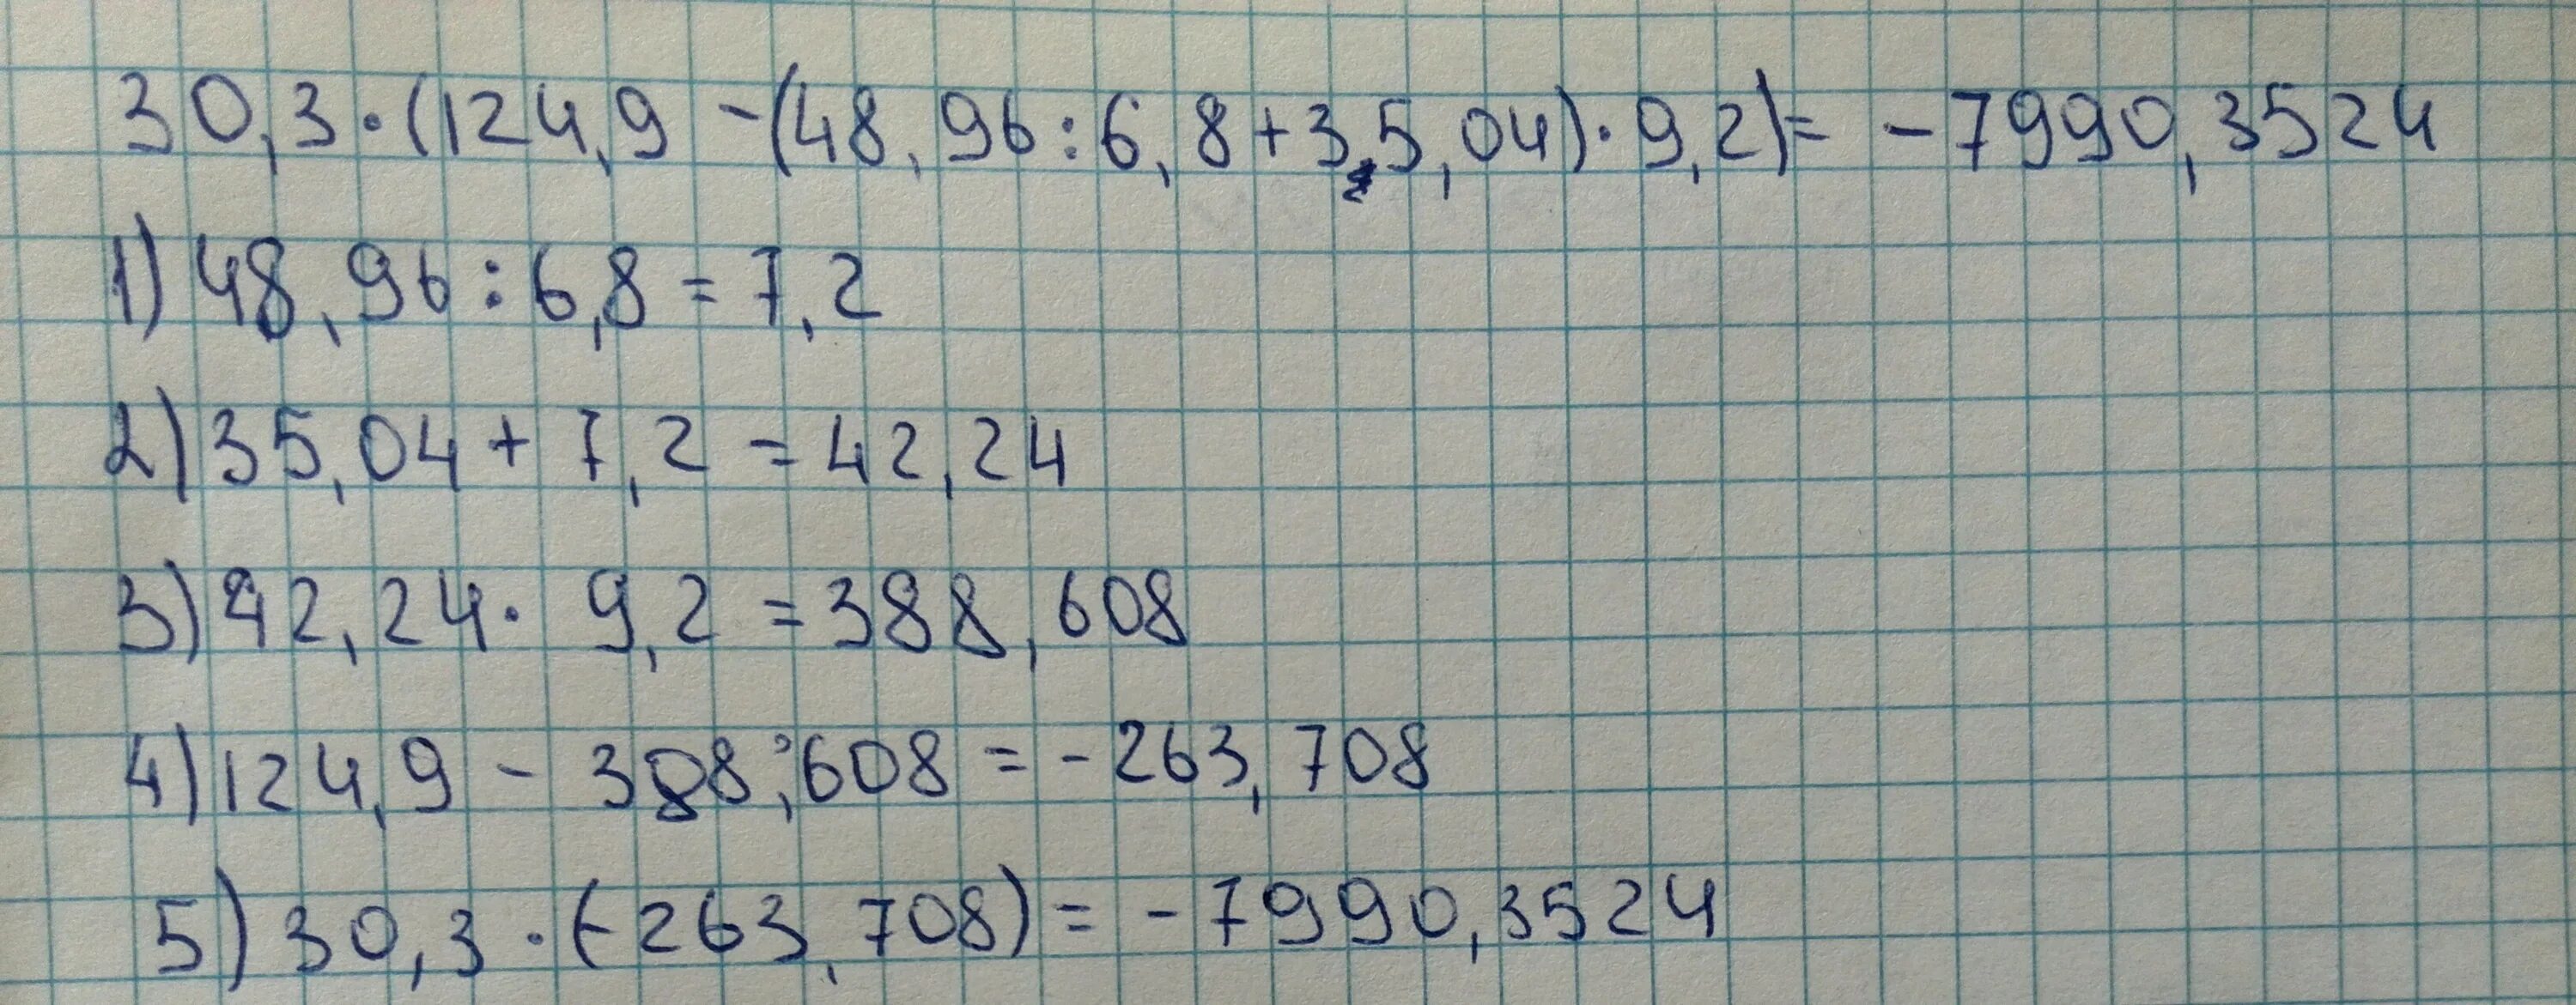 30,3·(124,9-(48,96:6,8+35,04)·9,2)= -7990,3524
1) 48,96:6,8=7,2
2) 35,04+7,2=42,24
3) 42,24·9,2=388,608
4) 124,9-388,608=-263,708
5) 30,3·(-263,708)=-7990,3524